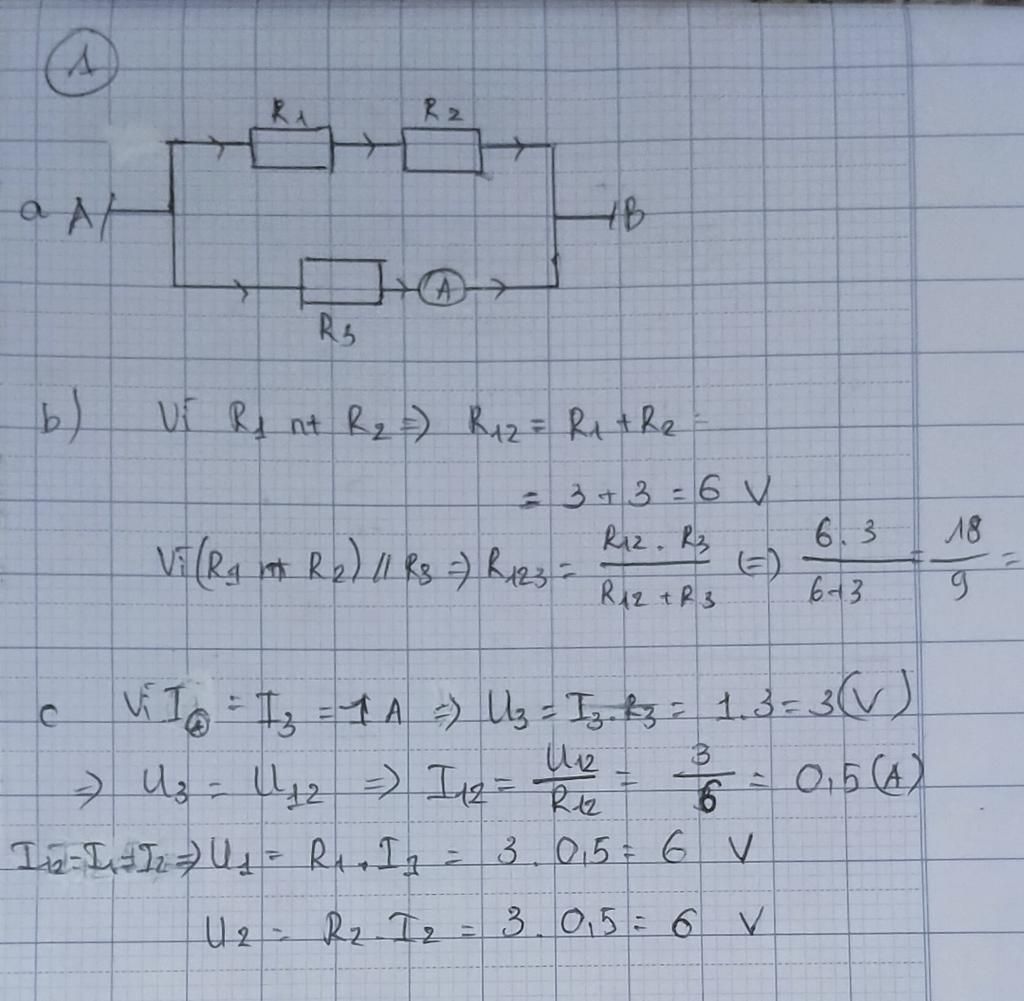 1
R1 R2
a A B
A
R3
b) Vì R1 nt R2 => R12 = R1 + R2 =
= 3 + 3 = 6 V
Vì (R1 nt R2) // R3 => R123 = R12 . R3 / R12 + R3 (=) 6 . 3 / 6+3 = 18 / 9 =
c Vì I(A) = I3 = 1 A => U3 = I3 . R3 = 1.3 = 3(V)
=> U3 = U12 => I12 = U12 / R12 = 3 / 6 = 0,5 (A)
I12 = I1 = I2 => U1 = R1 . I1 = 3 . 0,5 = 6 V
U2 = R2 . I2 = 3 . 0,5 = 6 V